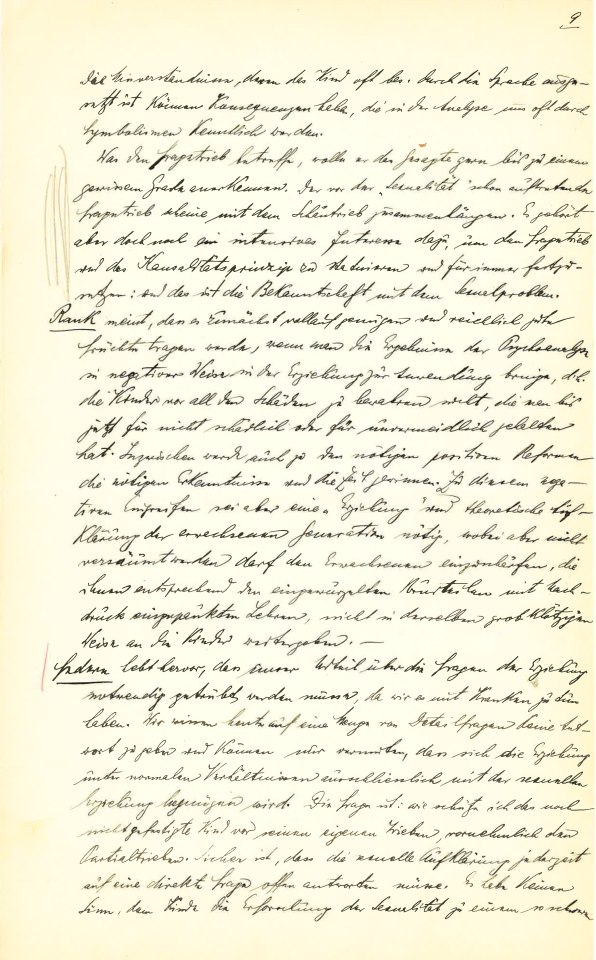 9
Die Missverständnisse, denen das Kind oft bes. durch die Sprache ausge-
setzt ist können Konsequenzen haben, die in der Analyse uns oft durch
Symbolismen kenntlich werden.
Was den Fragetrieb betreffe, wolle er das Gesagte gern bis zu einem
gewissen Grade anerkennen. Der vor der „Sexualität" schon auftretende
Fragetrieb scheine mit dem Schautrieb zusammenhängen. Es gehört
aber doch noch ein intensives Interesse dazu, um den Fragetrieb
und das Kausalitätsprinzip zu statuieren und für immer festzu-
setzen: und das ist die Bekanntschaft mit dem Sexualproblem.
Rank meint, dass es zunächst vollauf genügen und reichlich gute
Früchte tragen werde, wenn man die Ergebnisse der Psychoanalyse
in negativer Weise in der Erziehung zur Anwendung bringe, d.h.
die Kinder vor all den Schäden zu bewahren sucht, die man bis
jetzt für nicht schädlich oder für unvermeidlich gehalten
hat. Inzwischen werde auch zu den nötigen positiven Reformen
die nötigen Erkenntnisse und die Zeit gewinnen. Zu diesem nega-
tiven Eingreifen sei aber eine „Erziehung" und theoretische Auf-
klärung der erwachsenen Generation nötig, wobei aber nicht
versäumt werden darf den Erwachsenen einzuschärfen, die
ihnen entsprechend den eingewurzelten Vorurteilen mit Nach-
druck eingeprägten Lehren, nicht in derselben grobklotzigen
Weise an die Kinder weitergeben. —
Federn hebt hervor, dass unser Urteil über die Fragen der Erziehung
notwendig getrübt werden müsse, da wir es mit Kranken zu tun
haben. Wir wissen heute auf eine Menge von Detailfragen keine Ant-
wort zu geben und können nur vermuten, dass sich die Erziehung
unter normalen Verhältnissen ausschliesslich mit der sexuellen
Erziehung begnügen wird. Die Frage ist: wie schütze ich das noch
nicht gefestigte Kind vor seinen eigenen Trieben, vornehmlich den
Partialtrieben. Sicher ist, dass die sexuelle Aufklärung jederzeit
auf eine direkte Frage offen antworten müsse. Es habe keinen
Sinn, dem Kinde die Erforschung der Sexualität zu einem so schweren